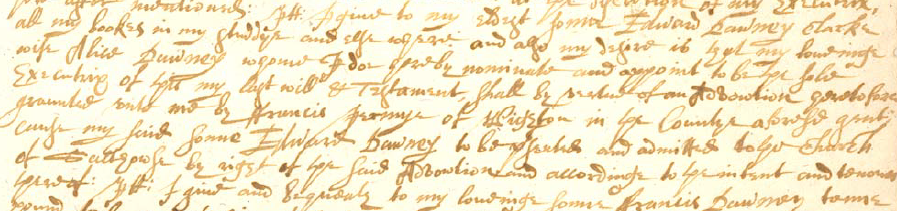 after mentioned: Itt: I give to my eldest sonne Edward Dawney Clarke
all my bookes in my studdye and else where and also my desire is that my loveinge
wife Alice Dawney whome I doe hereby nominate and appoint to be the sole
Executrix of this my last will & Testament, shall by vertue of an Advowtion heretofore
graunted unto me by Francis of in the Countye aforesd gent
cause my said sonne Edward Dawney to be presented and admitted to the Church
of by right of the said Advowtion and accordinge to the intent and tenour
thereof: Itt: I give and bequeath to my loveinge sonne Francis Dawney tenne
pound